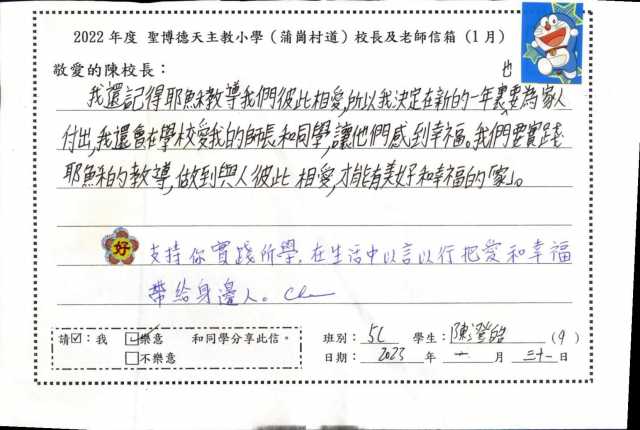 2022 年度 聖博德天主教小學（蒲崗村道）校長及老師信箱（1月）
敬愛的陳校長：
也
我還記得耶穌教導我們彼此相愛,所以我決定在新的一年裏要為家人
付出,我還會在學校愛我的師長和同學,讓他們感到幸福。我們要實踐
耶穌的教導,做到與人彼此相愛,才能有美好和幸福的「家」。
好
支持你實踐所學,在生活中以言以行把愛和幸福
帶給身邊人。
請☑：我 ☑樂意 和同學分享此信。
□不樂意
班別：5C 學生：陳澄皓 (9)
日期：2023 年 一 月 三十一 日